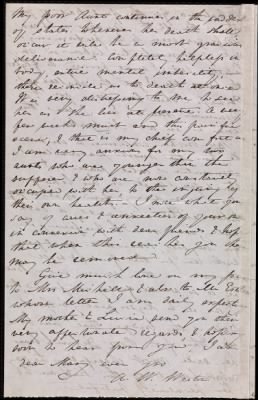 My poor Aunt continues in the saddest
of states whenever her death shall
occur it will be a most gracious
deliverance. Complete helplessness of
body, entire mental imbecility,
there reconcile us to death at once
It is very distressing to me to see
her as she lies at present. A
few weeks must end this painful
scene, & that is my chief comfort as
I am very anxious for my two
aunts who are younger than this
sufferer & who are now constantly
occupied with her to the injury of
their own health. I note what you
say of cares & anxieties of your own
in connexion with dear friends & hope
that when this reaches you they
may be removed.
Give much love on my part
to Mrs Michell & also to Miss
whose letter I am daily expecting
My mother & Lucia send you their
very affectionate regards & hoping
soon to hear from you I am
dear Mary ever yrs
A. W. Weston